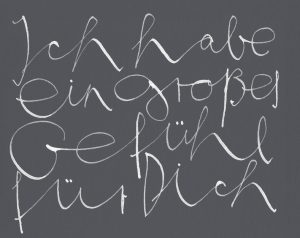 Ich habe
ein großes
Gefühl
für Dich